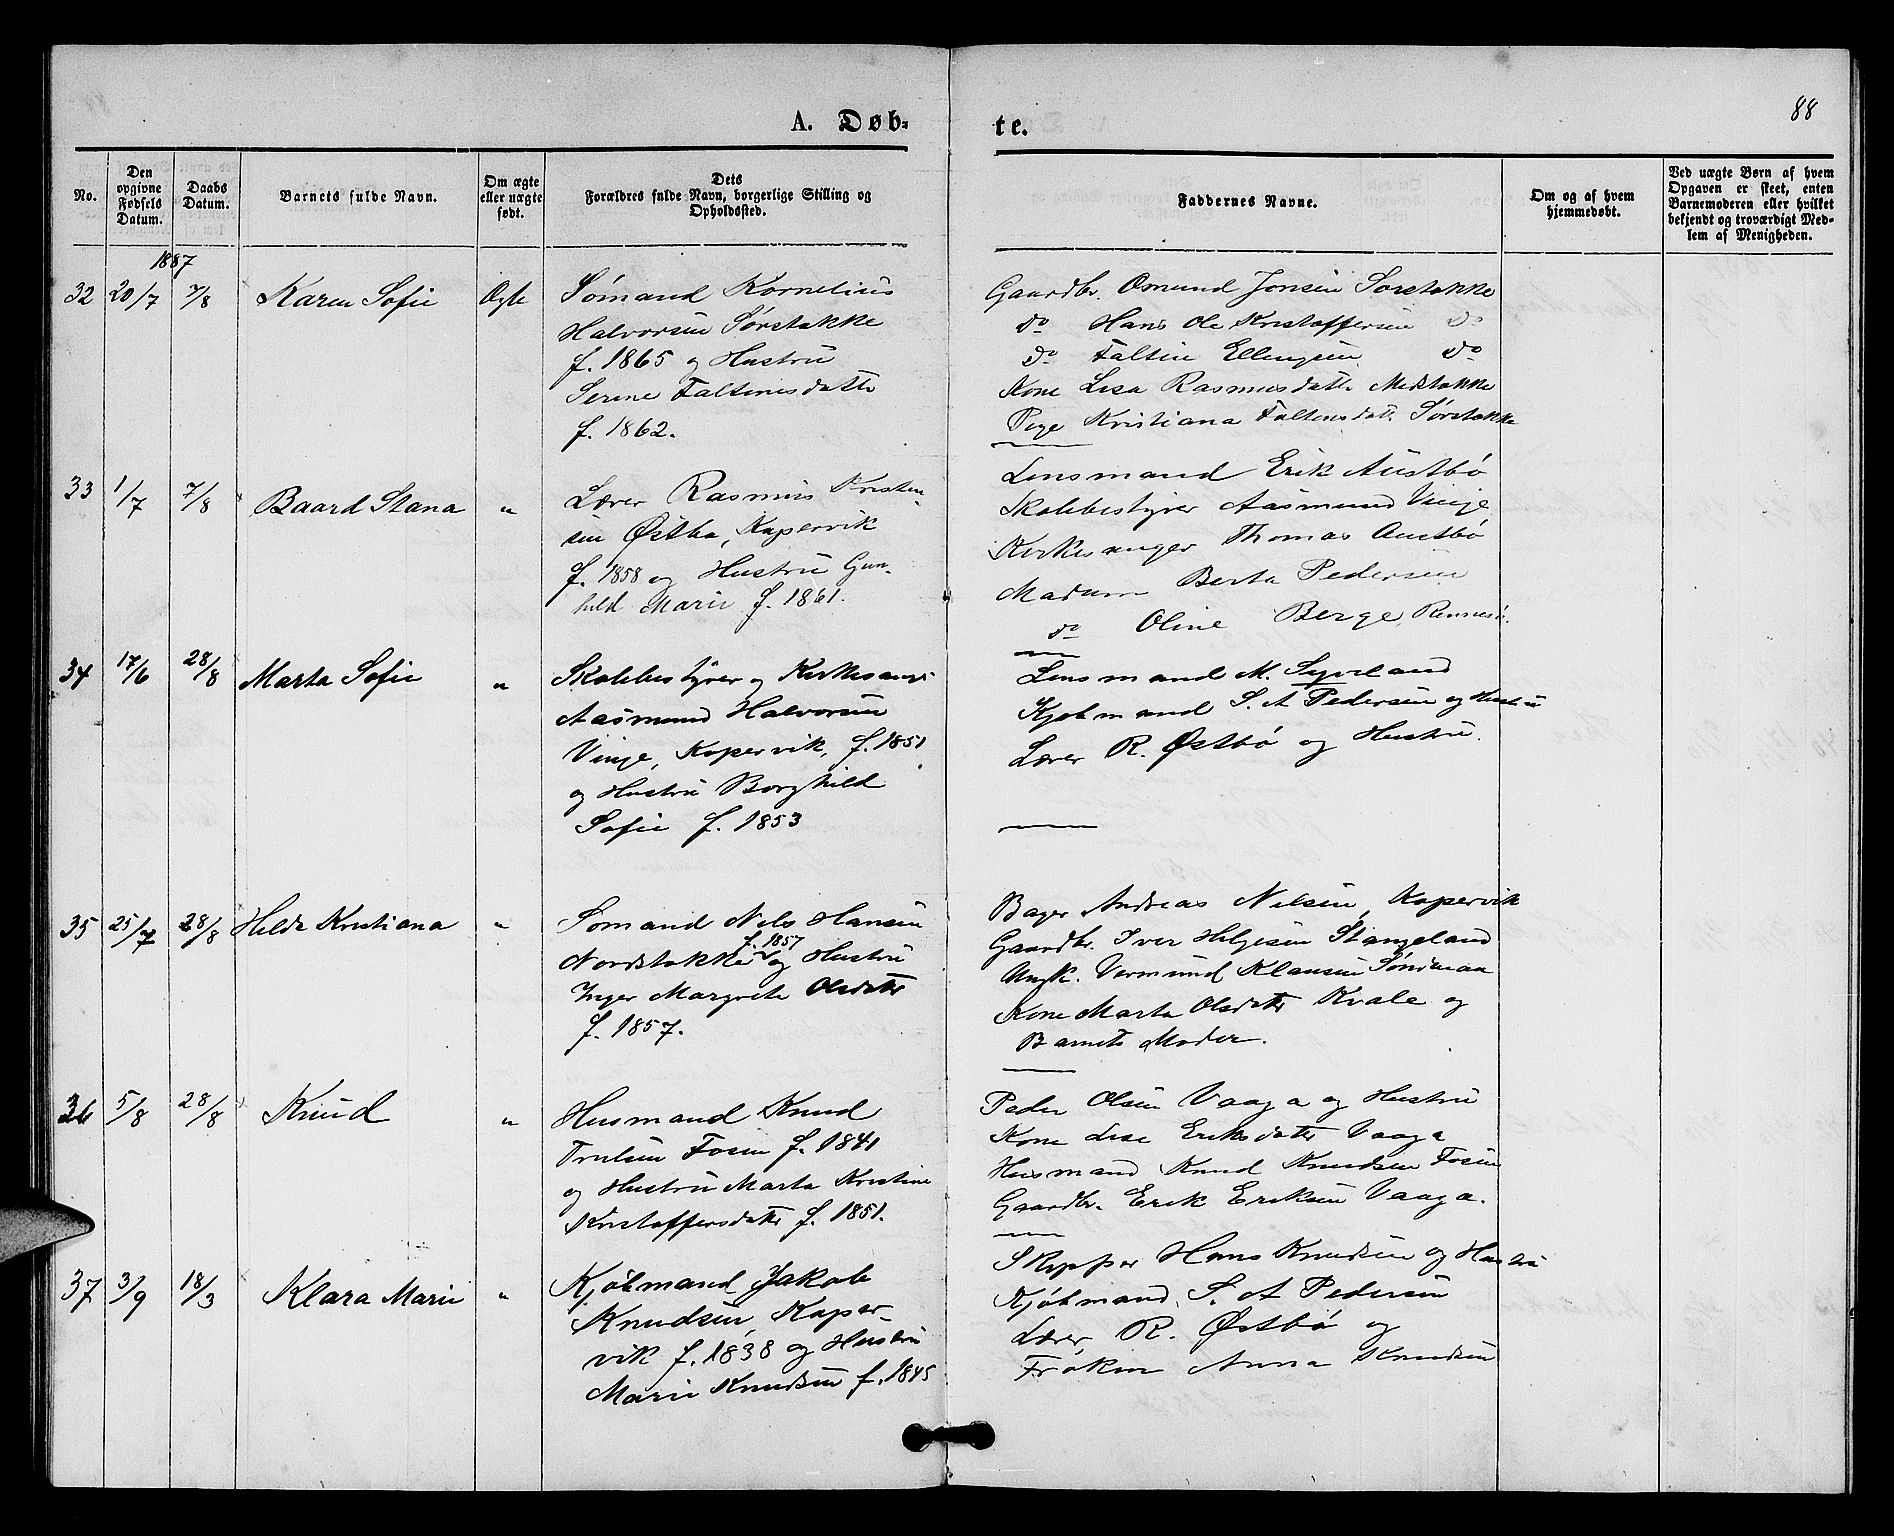 88
A. Døb-
te.
No.
Den opgivne Fødsels Datum.
Daabs Datum.
Barnets fulde Navn.
Om ægte eller uægte født.
Dets Forældres fulde Navn, borgerlige Stilling og Opholdssted.
Faddernes Navne.
Om og af hvem hjemmedøbt.
Ved uægte Børn af hvem Opgaven er skeet, enten Barnemoderen eller hvilket bekjendt og troværdigt Medlem af Menigheden.
1887
32 20/7 7/8 Karen Sofie Ægte
Sømand Kornelius
Halvorsen Sørstokke
f. 1865 og Hustru
Serine Faltinsdatter
f. 1862.
Gaardbr. Osmund Jonsen Sørstokke
do Hans Ole Kristoffersen do
do Faltin Ellingsen do
Kone Lisa Rasmusdattr Medstokke
Pige Kristiana Faltensdatt. Sørstokke
33 1/7 7/8 Baard Stana "
Lærer Rasmus Kristen-
sen Østbø, Kopervik
f. 1858 og Hustru Gun-
hild Marie f. 1861.
Lensmand Erik Austbø
Skolebestyrer Aasmund Vinje
Kirkesanger Thomas Austbø
Madam Berta Pedersen
do Oline Berge, Rennesø.
34 17/6 28/8 Marta Sofie "
Skolebestyrer og Kirkesanger
Aasmund Halvorsen
Vinje, Kopervik, f. 1851
og Hustru Borghild
Sofie f. 1853
Lensmand M. Syreland
Kjøbmand S. A Pedersen og Hustru
Lærer R. Østbø og Hustru.
35 25/7 28/8 Helde Kristiana "
Sømand Nils Hansen
Nordstokke f. 1857 og Hustru
Inger Margrete Olsdatter
f. 1857.
Bager Andreas Nilsen, Kopervik
Gaardbr. Iver Helgesen Stangeland
Ungk. Vermund Klausen
Kone Marta Olsdatter Kvale og
Barnets Moder.
36 5/8 28/8 Knud "
Husmand Knud
Trulsen Fosen f. 1841
og Hustru Marta Kristine
Kristoffersdatter f. 1851.
Peder Olsen Vaaga og Hustru
Kone Lise Eriksdatter Vaaga
Husmand Knud Knudsen Fosen
Gaardbr. Erik Eriksen Vaaga.
37 3/9 18/3 Klara Marie "
Kjøbmand Jakob
Knudsen, Koper-
vik f. 1838 og Hustru
Marie Knudsen f. 1845
Skipper Hans Knudsen og Hustru
Kjøbmand S. A Pedersen
Lærer R. Østbø og
Frøken Anna Knudsen